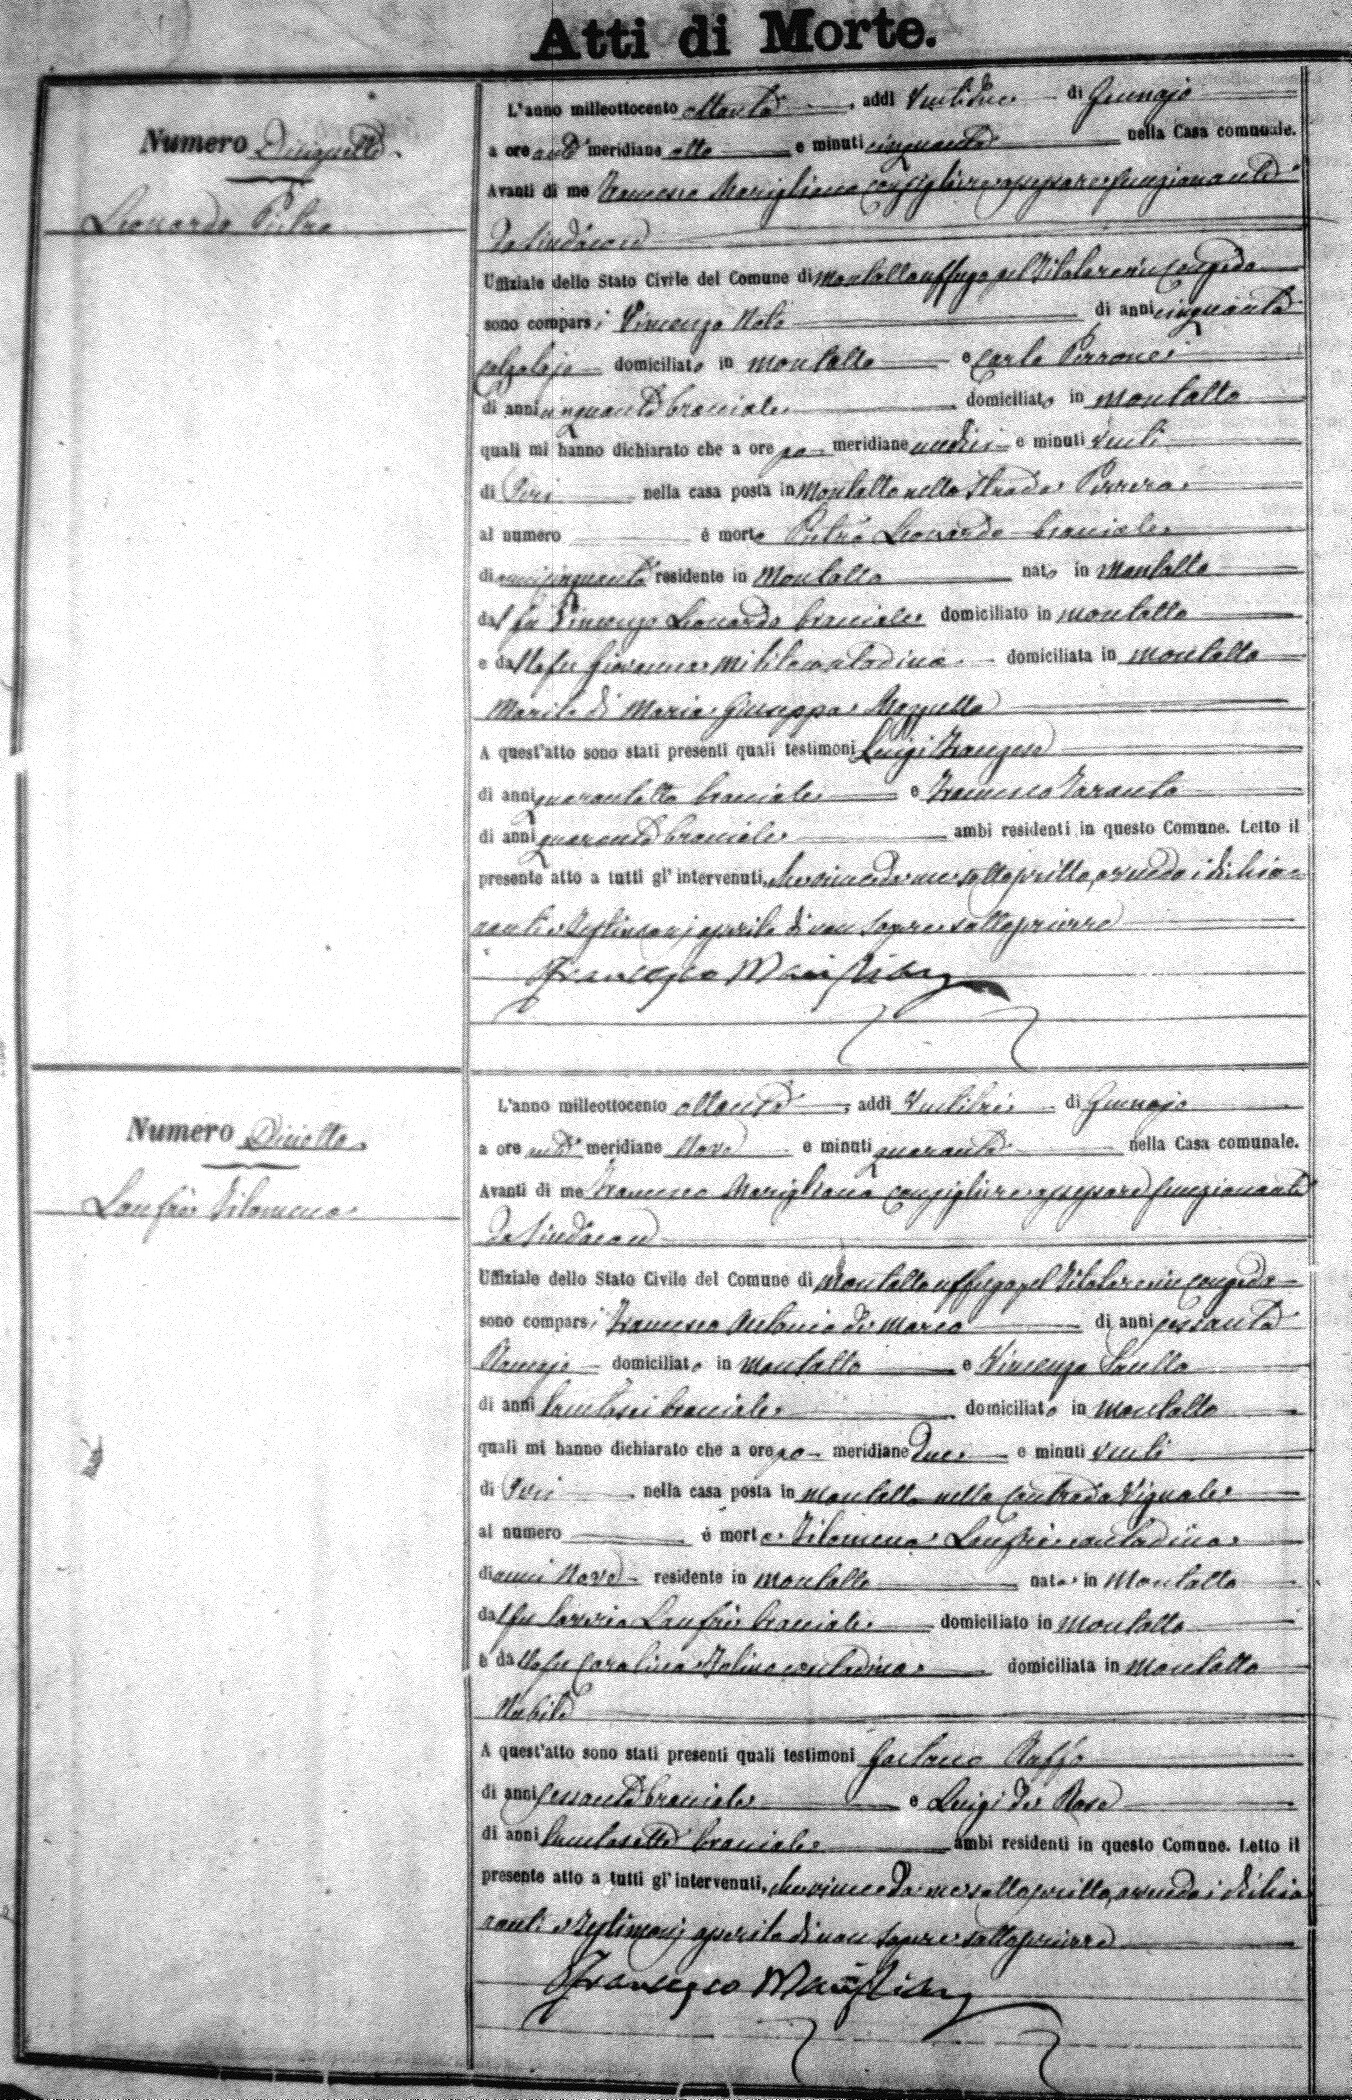 Atti di Morte.
Numero Diciassette.
Leonardo Pietro
L'anno milleottocento ottanta, addì Ventidue di Gennajo
a ore anti meridiane otto e minuti cinquanta nella Casa comunale.
Avanti di me Francesco Marigliano consigliere assessore funzionante
da Sindaco ed
Uffiziale dello Stato Civile del Comune di Montalto uffugo pel titolare in congedo
sono comparsi Vincenzo Nola di anni cinquanta
calzolajo domiciliato in Montalto e Carlo Perrone
di anni cinquanta bracciale domiciliato in Montalto
quali mi hanno dichiarato che a ore po meridiane undici e minuti venti
di Jeri nella casa posta in Montalto nella Strada
al numero è morto Pietro Leonardo bracciale
di anni cinquanta residente in Montalto nato in Montalto
dal fu Vincenzo Leonardo bracciale domiciliato in Montalto
e dalla fu Giovanna contadina domiciliata in Montalto
Marito di Maria Giuseppa
A quest'atto sono stati presenti quali testimoni Luigi
di anni quarantotto bracciale e Francesco Taranto
di anni quaranta bracciale ambi residenti in questo Comune. Letto il
presente atto a tutti gl'intervenuti, che viene da me sottoscritto, avendo i dichia-
ranti e testimonj asserito di non sapere sottoscrivere
Francesco Marigliano
Numero Diciotto.
Lanfrè Filomena
L'anno milleottocento ottanta, addì Ventitre di Gennajo
a ore anti meridiane Nove e minuti quaranta nella Casa comunale.
Avanti di me Francesco Marigliano consigliere assessore funzionante
da Sindaco ed
Uffiziale dello Stato Civile del Comune di Montalto uffugo pel titolare in congedo
sono comparsi Francesco Antonio di Marco di anni sessanta
domiciliato in Montalto e Vincenzo
di anni trentasei bracciale domiciliato in Montalto
quali mi hanno dichiarato che a ore po meridiane due e minuti venti
di Jeri nella casa posta in Montalto nella Contrada Vignale
al numero è morta Filomena Lanfrè contadina
di anni Nove residente in Montalto nata in Montalto
dal fu Lanfrè bracciale domiciliato in Montalto
e dalla fu Carolina contadina domiciliata in Montalto
Nubile
A quest'atto sono stati presenti quali testimoni Gaetano Ruffo
di anni sessanta bracciale e Luigi de Rose
di anni trentasette bracciale ambi residenti in questo Comune. Letto il
presente atto a tutti gl'intervenuti, che viene da me sottoscritto, avendo i dichia
ranti e testimonj asserito di non sapere sottoscrivere
Francesco Marigliano